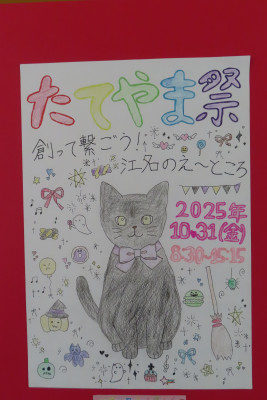 たてやま祭
創って繋ごう!!
江名のえ～ところ
2025年
10.31(金)
8:30~15:15